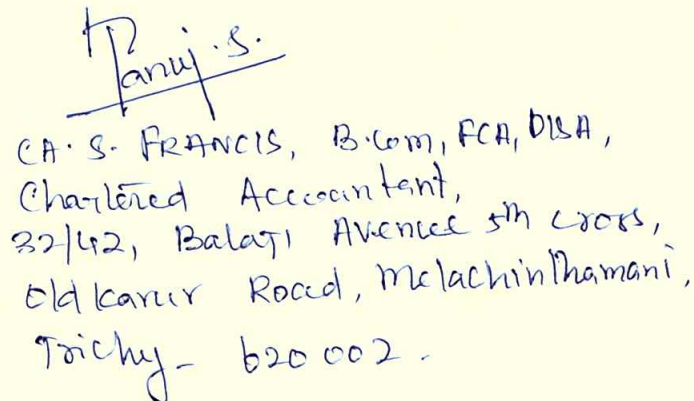 CA. S. FRANCIS, B.Com, FCA, DISA,
Chartered Accountant,
32/42, Balaji Avenue 5th cross,
Old Karur Road, Melachinthamani,
Trichy - 620 002.